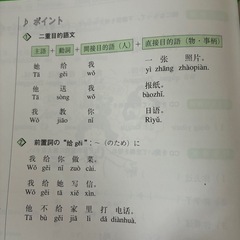 ポイント
1 二重目的語文
主語 + 動詞 + 間接目的語（人） + 直接目的語（物・事柄）
她 给 我 一 张 照片。
Tā gěi wǒ yì zhāng zhàopiàn.
他 送 我 报纸。
Tā sòng wǒ bàozhǐ.
我 教 你 日语。
Wǒ jiāo nǐ Rìyǔ.
2 前置詞の「给 gěi」：～（のため）に
我 给 你 做 菜。
Wǒ gěi nǐ zuò cài.
我 给 她 写 信。
Wǒ gěi tā xiě xìn.
他 不 给 家 里 打 电话。
Tā bù gěi jiā li dǎ diànhuà.